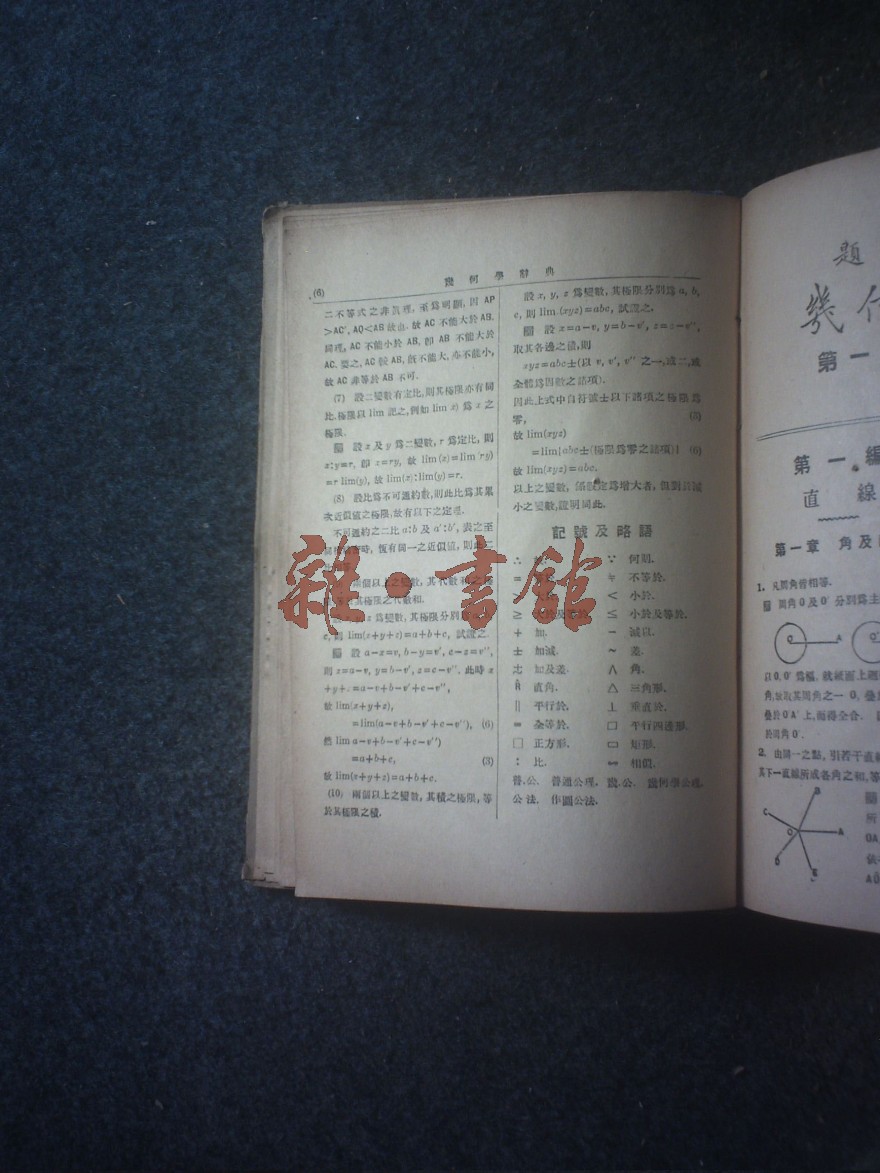 幾何學辭典
(6)
二不等式之非眞理，至爲明顯，因 AP
>AC′, AQ<AB 故也. 故 AC 不能大於 AB.
同理，AC 不能小於 AB, 卽 AB 不能大於
AC. 要之，AC 較 AB, 旣不能大，亦不能小，
故 AC 非等於 AB 不可.
(7) 設二變數有定比，則其極限亦有同
比. 極限以 lim 記之，例如 lim x) 爲 x 之
極限.
設 x 及 y 爲二變數，r 爲定比，則
x:y=r, 卽 x=ry, 故 lim(x)=lim ry)
=r lim(y), 故 lim(x):lim(y)=r.
(8) 設比爲不可通約數，則此比爲其累
次近似值之極限，故有以下之定理.
不可通約之二比 a:b 及 a′:b′, 表之至
時，恆有同一之近似值，則此二
個以上之變數，其代數和之
其極限之代數和.
z 爲變數，其極限分別
c, 則 lim(x+y+z)=a+b+c, 試證之.
設 a-x=v, b-y=v′, c-z=v″,
則 x=a-v, y=b-v′, z=c-v″. 此時 x
+y+.=a-v+b-v′+c-v″,
故 lim(x+y+z),
=lim(a-v+b-v′+c-v″), (6)
然 lim a-v+b-v′+c-v″)
=a+b+c, (3)
故 lim(x+y+z)=a+b+c.
(10) 兩個以上之變數，其積之極限，等
於其極限之積.
設 x, y, z 爲變數，其極限分別爲 a, b,
c, 則 lim (xyz)=abc, 試證之.
設 x=a-v, y=b-v′, z=c-v″,
取其各邊之積，則
xyz=abc±(以 v, v′, v″ 之一，或二，或
全體爲因數之諸項).
因此，上式中自符號±以下諸項之極限爲
零， (3)
故 lim(xyz)
=lim{abc±(極限爲零之諸項)} (6)
故 lim(xyz)=abc.
以上之變數，係設定爲增大者，但對於減
小之變數，證明同此.
記號及略語
∴ ∵ 何則.
= ≠ 不等於.
< 小於.
≥ 大於及等於. ≤ 小於及等於.
+ 加. − 減以.
± 加減. ~ 差.
加及差. ∧ 角.
直角. △ 三角形.
∥ 平行於. ⊥ 垂直於.
≡ 全等於. □ 平行四邊形.
□ 正方形. ▭ 矩形.
: 比. 相似.
普.公. 普通公理. 幾.公. 幾何學公理.
公法. 作圖公法.
雜·書館
題
幾何
第一
第一編
直線
第一章 角及
1. 凡周角皆相等.
周角 O 及 O′ 分別爲主
O A
以 O, O′ 爲
角，故取其周角之一 O, 疊
疊於 O′A′ 上，而得全合.
於周角 O′.
2. 由同一之點，引若干直線
其下一直線所成各角之和，等
B
C
O A
D
E
所
OA,